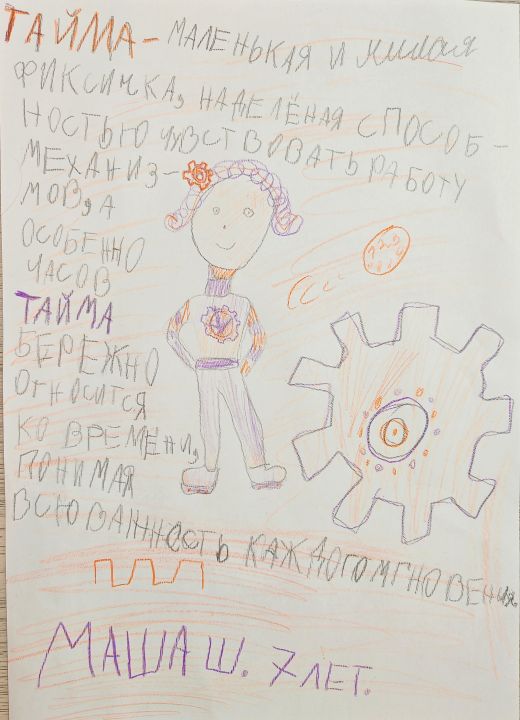 ТАЙМА - МАЛЕНЬКАЯ И милая
ФИКСИЧКА, НАДЕЛЁНАЯ СПОСОБ-
НОСТЬЮ ЧУВСТВОВАТЬ РАБОТУ
МЕХАНИЗ-
МОВ, А
ОСОБЕННО
ЧАСОВ
ТАЙМА
БЕРЕЖНО
ОТНОСИТСЯ
КО ВРЕМЕНИ,
ПОНИМАЯ
ВСЮ ВАЖНОСТЬ КАЖДОГО МГНОВЕНИЯ.
МАША Ш. 7 ЛЕТ.